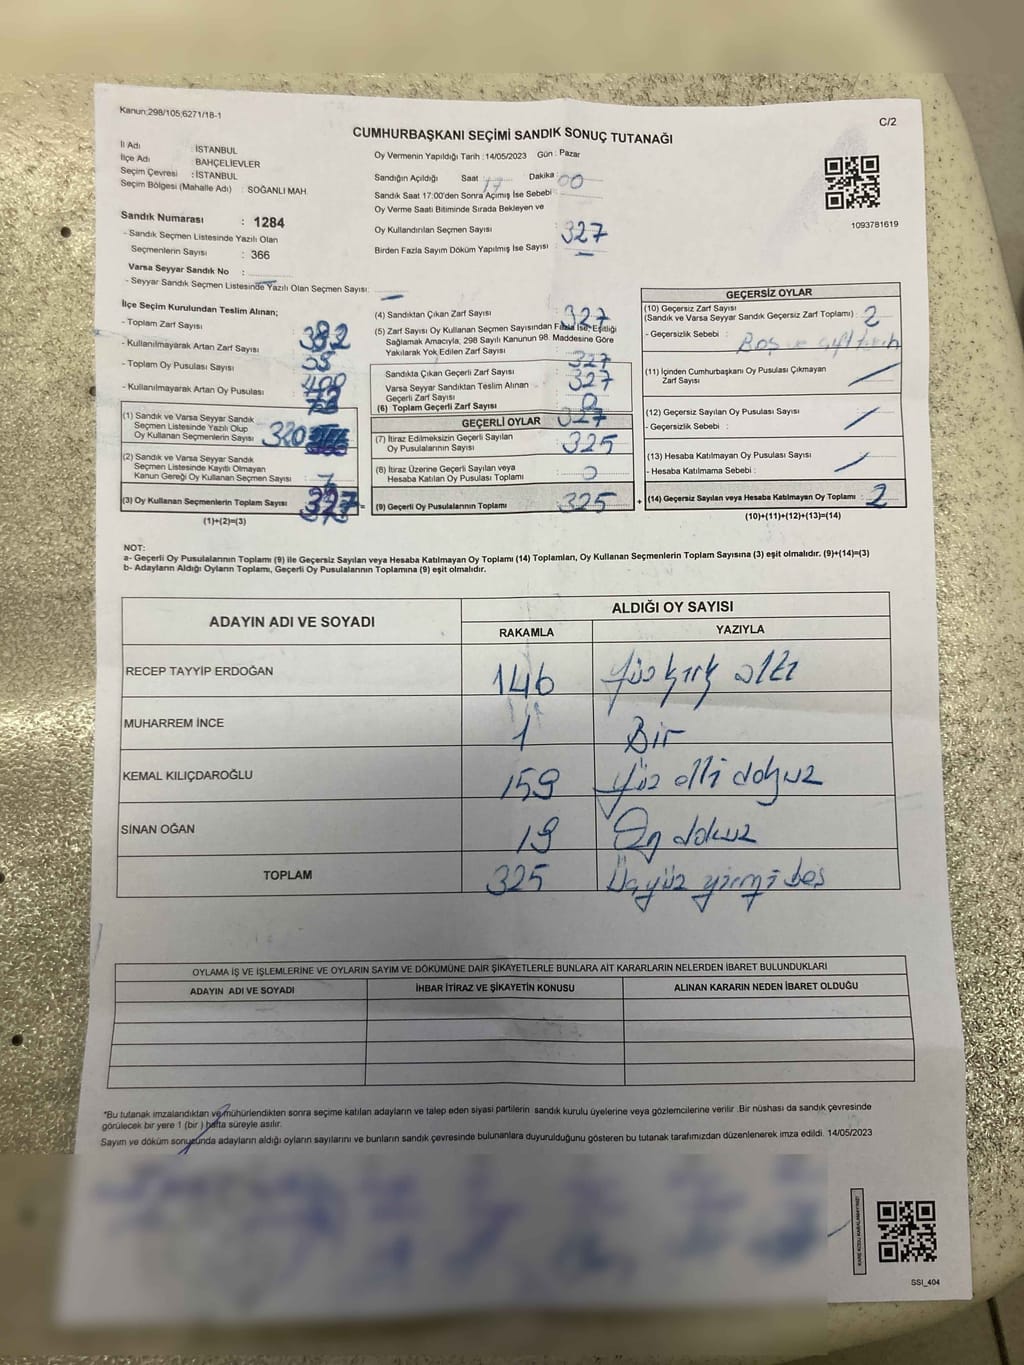 Kanun:298/105;6271/18-1
C/2
CUMHURBAŞKANI SEÇİMİ SANDIK SONUÇ TUTANAĞI
İl Adı : İSTANBUL
İlçe Adı BAHÇELİEVLER
Seçim Çevresi : İSTANBUL
Seçim Bölgesi (Mahalle Adı) : SOĞANLI MAH.
Sandık Numarası : 1284
- Sandık Seçmen Listesinde Yazılı Olan
Seçmenlerin Sayısı : 366
Varsa Seyyar Sandık No :
- Seyyar Sandık Seçmen Listesinde Yazılı Olan Seçmen Sayısı:
Oy Vermenin Yapıldığı Tarih : 14/05/2023 Gün : Pazar
Sandığın Açıldığı Saat 17 Dakika : 00
Sandık Saat 17:00'den Sonra Açılmış İse Sebebi :
Oy Verme Saati Bitiminde Sırada Bekleyen ve
Oy Kullandırılan Seçmen Sayısı : 327
Birden Fazla Sayım Döküm Yapılmış İse Sayısı : —
1093781619
İlçe Seçim Kurulundan Teslim Alınan;
- Toplam Zarf Sayısı : 382
- Kullanılmayarak Artan Zarf Sayısı :
- Toplam Oy Pusulası Sayısı : 400
- Kullanılmayarak Artan Oy Pusulası :
(1) Sandık ve Varsa Seyyar Sandık
Seçmen Listesinde Yazılı Olup
Oy Kullanan Seçmenlerin Sayısı : 320
(2) Sandık ve Varsa Seyyar Sandık
Seçmen Listesinde Kayıtlı Olmayan
Kanun Gereği Oy Kullanan Seçmen Sayısı : 7
(3) Oy Kullanan Seçmenlerin Toplam Sayısı : 327
(1)+(2)=(3)
(4) Sandıktan Çıkan Zarf Sayısı : 327
(5) Zarf Sayısı Oy Kullanan Seçmen Sayısından Fazla İse, Eşitliği
Sağlamak Amacıyla, 298 Sayılı Kanunun 98. Maddesine Göre
Yakılarak Yok Edilen Zarf Sayısı : 327
Sandıkta Çıkan Geçerli Zarf Sayısı : 327
Varsa Seyyar Sandıktan Teslim Alınan
Geçerli Zarf Sayısı : 0
(6) Toplam Geçerli Zarf Sayısı : 327
GEÇERLİ OYLAR
(7) İtiraz Edilmeksizin Geçerli Sayılan
Oy Pusulalarının Sayısı : 325
(8) İtiraz Üzerine Geçerli Sayılan veya
Hesaba Katılan Oy Pusulası Toplamı : 0
(9) Geçerli Oy Pusulalarının Toplamı : 325
GEÇERSİZ OYLAR
(10) Geçersiz Zarf Sayısı
(Sandık ve Varsa Seyyar Sandık Geçersiz Zarf Toplamı) : 2
- Geçersizlik Sebebi : Boş
(11) İçinden Cumhurbaşkanı Oy Pusulası Çıkmayan
Zarf Sayısı :
(12) Geçersiz Sayılan Oy Pusulası Sayısı :
- Geçersizlik Sebebi :
(13) Hesaba Katılmayan Oy Pusulası Sayısı :
- Hesaba Katılmama Sebebi :
+ (14) Geçersiz Sayılan veya Hesaba Katılmayan Oy Toplamı : 2
(10)+(11)+(12)+(13)=(14)
NOT:
a- Geçerli Oy Pusulalarının Toplamı (9) ile Geçersiz Sayılan veya Hesaba Katılmayan Oy Toplamı (14) Toplamları, Oy Kullanan Seçmenlerin Toplam Sayısına (3) eşit olmalıdır. (9)+(14)=(3)
b- Adayların Aldığı Oyların Toplamı, Geçerli Oy Pusulalarının Toplamına (9) eşit olmalıdır.
ADAYIN ADI VE SOYADI
ALDIĞI OY SAYISI
RAKAMLA YAZIYLA
RECEP TAYYİP ERDOĞAN 146 Yüz kırk altı
MUHARREM İNCE 1 Bir
KEMAL KILIÇDAROĞLU 159 Yüz elli dokuz
SİNAN OĞAN 19 On dokuz
TOPLAM 325 Üçyüz yirmi beş
OYLAMA İŞ VE İŞLEMLERİNE VE OYLARIN SAYIM VE DÖKÜMÜNE DAİR ŞİKAYETLERLE BUNLARA AİT KARARLARIN NELERDEN İBARET BULUNDUKLARI
ADAYIN ADI VE SOYADI İHBAR İTİRAZ VE ŞİKAYETİN KONUSU ALINAN KARARIN NEDEN İBARET OLDUĞU
*Bu tutanak imzalandıktan ve mühürlendikten sonra seçime katılan adayların ve talep eden siyasi partilerin sandık kurulu üyelerine veya gözlemcilerine verilir .Bir nüshası da sandık çevresinde
görülecek bir yere 1 (bir ) hafta süreyle asılır.
Sayım ve döküm sonucunda adayların aldığı oyların sayılarını ve bunların sandık çevresinde bulunanlara duyurulduğunu gösteren bu tutanak tarafımızdan düzenlenerek imza edildi. 14/05/2023
KARE KODU KARALAMAYINIZ!
SSI_404